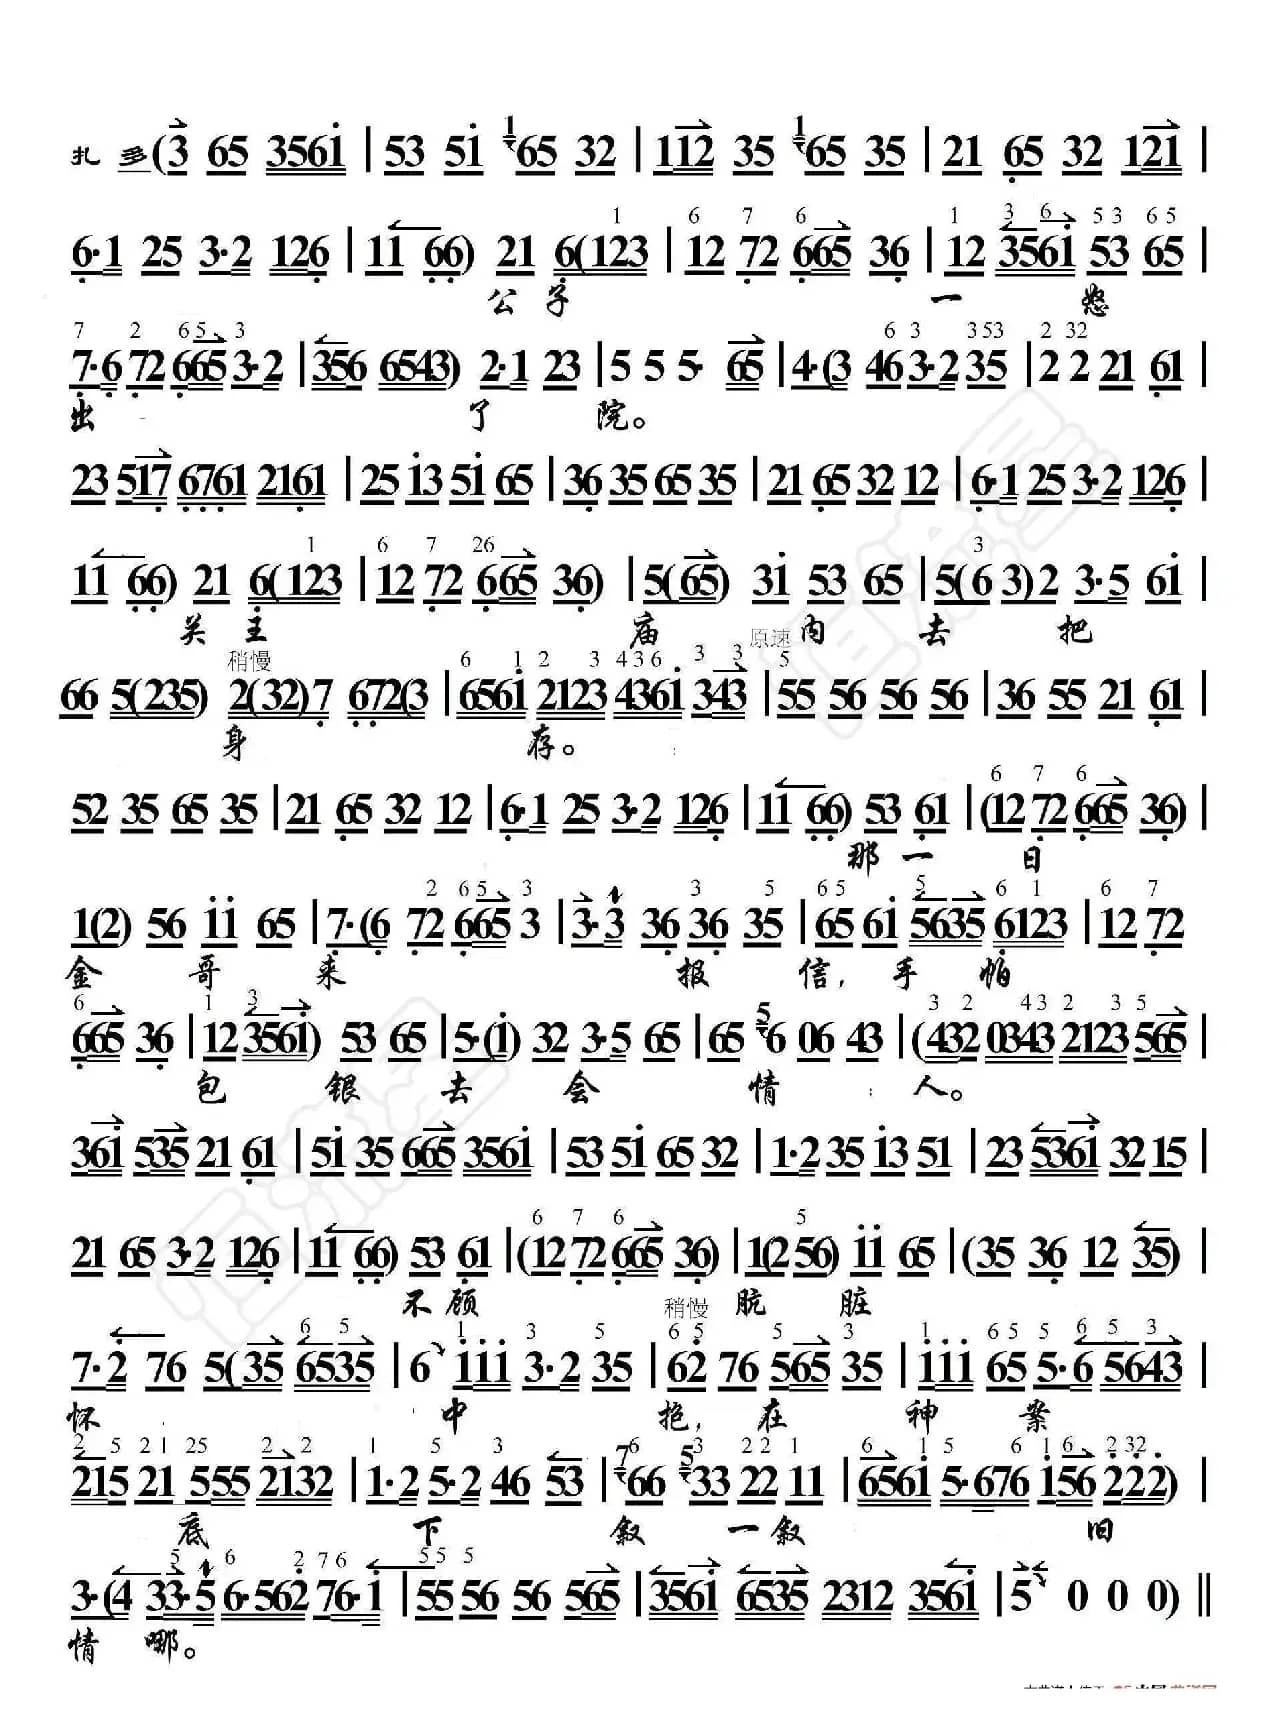 扎 多(3 65 3561|53 51 165 32|112 35 165 35|21 65 32 121|
1 6 7 6 1 3 6 5 3 6 5
6·1 25 3·2 126|11 66) 21 6(123|12 72 665 36|12 3561 53 65|
公 子 一 怒
7 2 6 5 3 6 3 3 5 3 2 32
7·6 72 665 3·2|356 6543) 2·1 23|5 5 5· 65|4·(3 46 3·2 35|2 2 21 61|
出 - 了 院。
23 517 6761 2161|25 13 51 65|36 35 65 35|21 65 32 12|6·1 25 3·2 126|
1 6 7 26 3
11 66) 21 6(123|12 72 665 36)|5(65) 31 53 65|5(6 3)2 3·5 61|
关 王 庙 内 去 把
稍慢 原速
6 1 2 3 4 3 6 3 3 5
66 5(235) 2(32)7 672(3|6561 2123 4361 343|55 56 56 56|36 55 21 61|
身 存。
52 35 65 35|21 65 32 12|6·1 25 3·2 126|11 66) 53 61|(12 72 665 36)|
那 一 日
2 6 5 3 3 5 6 5 5 6 1 6 7
1(2) 56 11 65|7·(6 72 665 3|3·3 36 36 35|65 61 5635 6123|12 72
金 哥 来 报 信, 手 帕
6 1 3 3 2 4 3 2 3 5
665 36|12 3561) 53 65|5·(1) 32 3·5 65|65 56 06 43|(432 0343 2123 565|
包 银 去 会 情 人。
361 535 21 61|51 35 665 3561|53 51 65 32|1·2 35 13 51|23 5361 32 15|
6 7 6 5
21 65 3·2 126|11 66) 53 61|(12 72 665 36)|1(2 56) 11 65|(35 36 12 35)|
不 顾 肮 脏
稍慢
6 5 1 3 5 6 5 1 6 5 6 5 3
7·2 76 5(35 6535|6 111 3·2 35|62 76 565 35|111 65 5·6 5643|
怀 中 抱, 在 神 案
2 5 2 1 25 2 2 1 2 5 3 6 3 2 2 1 6 1 5 6 1 6 2 32
215 21 555 2132|1·2 5·2 46 53|766 533 22 11|6561 5·676 156 222)|
底 下 叙 一 叙 旧
5 6 2 7 6 5 5 5
3·(4 33·5 6·562 76·1|55 56 56 565|3561 6535 2312 3561|5 0 0 0)‖
情 哪。